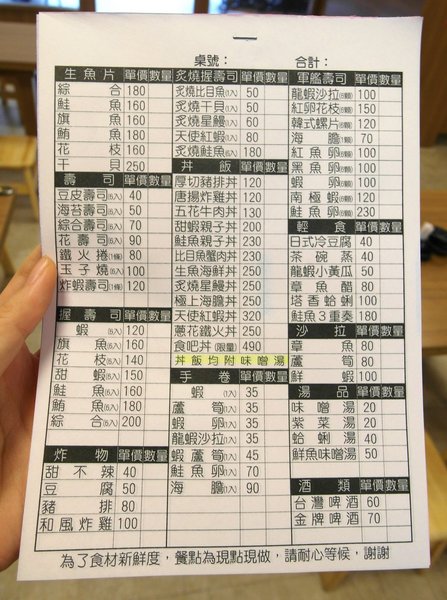 桌號：
合計：
生魚片 單價 數量
綜合 180
鮭魚 160
旗魚 160
鮪魚 180
花枝 160
干貝 250
壽司 單價 數量
豆皮壽司(6入) 40
海苔壽司(6入) 50
綜合壽司(6入) 70
花壽司(6入) 90
鐵火捲(1條) 80
玉子燒(6入) 100
炸蝦壽司(1條) 120
握壽司 單價 數量
蝦(6入) 120
旗魚(6入) 160
花枝(6入) 140
甜蝦(6入) 150
鮭魚(6入) 160
鮪魚(6入) 180
綜合(6入) 200
炸物 單價 數量
甜不辣 40
豆腐 50
豬排 80
和風炸雞 100
炙燒握壽司 單價 數量
炙燒比目魚(1入) 50
炙燒干貝(1入) 50
炙燒星鰻(1入) 60
天使紅蝦(1入) 80
炙燒鮭魚(6入) 180
丼飯 單價 數量
厚切豬排丼 120
唐揚炸雞丼 120
五花牛肉丼 130
甜蝦親子丼 200
鮭魚親子丼 230
比目魚蟹肉丼 230
生魚海鮮丼 250
炙燒星鰻丼 250
極上海膽丼 250
天使紅蝦丼 320
蔥花鐵火丼 250
食吧丼(限量) 490
丼飯均附味噌湯
手卷 單價 數量
蝦(1入) 35
蘆筍(1入) 35
蝦卵(1入) 35
龍蝦沙拉(1入) 35
蝦蘆筍(1入) 45
鮭魚卵(1入) 70
海膽(1入) 90
軍艦壽司 單價 數量
龍蝦沙拉(6顆) 100
紅卵花枝(6顆) 150
韓式螺片(6顆) 120
海膽(1顆) 70
紅魚卵(6顆) 100
黑魚卵(6顆) 100
蝦卵(6顆) 100
南極蝦(6顆) 120
鮭魚卵(6顆) 230
輕食 單價 數量
日式冷豆腐 40
茶碗蒸 40
龍蝦小黃瓜 50
章魚醋 80
塔香蛤蜊 100
鮭魚3重奏 180
沙拉 單價 數量
章魚 80
蘆筍 80
鮮蝦 100
湯品 單價 數量
味噌湯 20
紫菜湯 20
蛤蜊湯 40
鮮魚味噌湯 50
酒類 單價 數量
台灣啤酒 60
金牌啤酒 70
為了食材新鮮度，餐點為現點現做，請耐心等候，謝謝